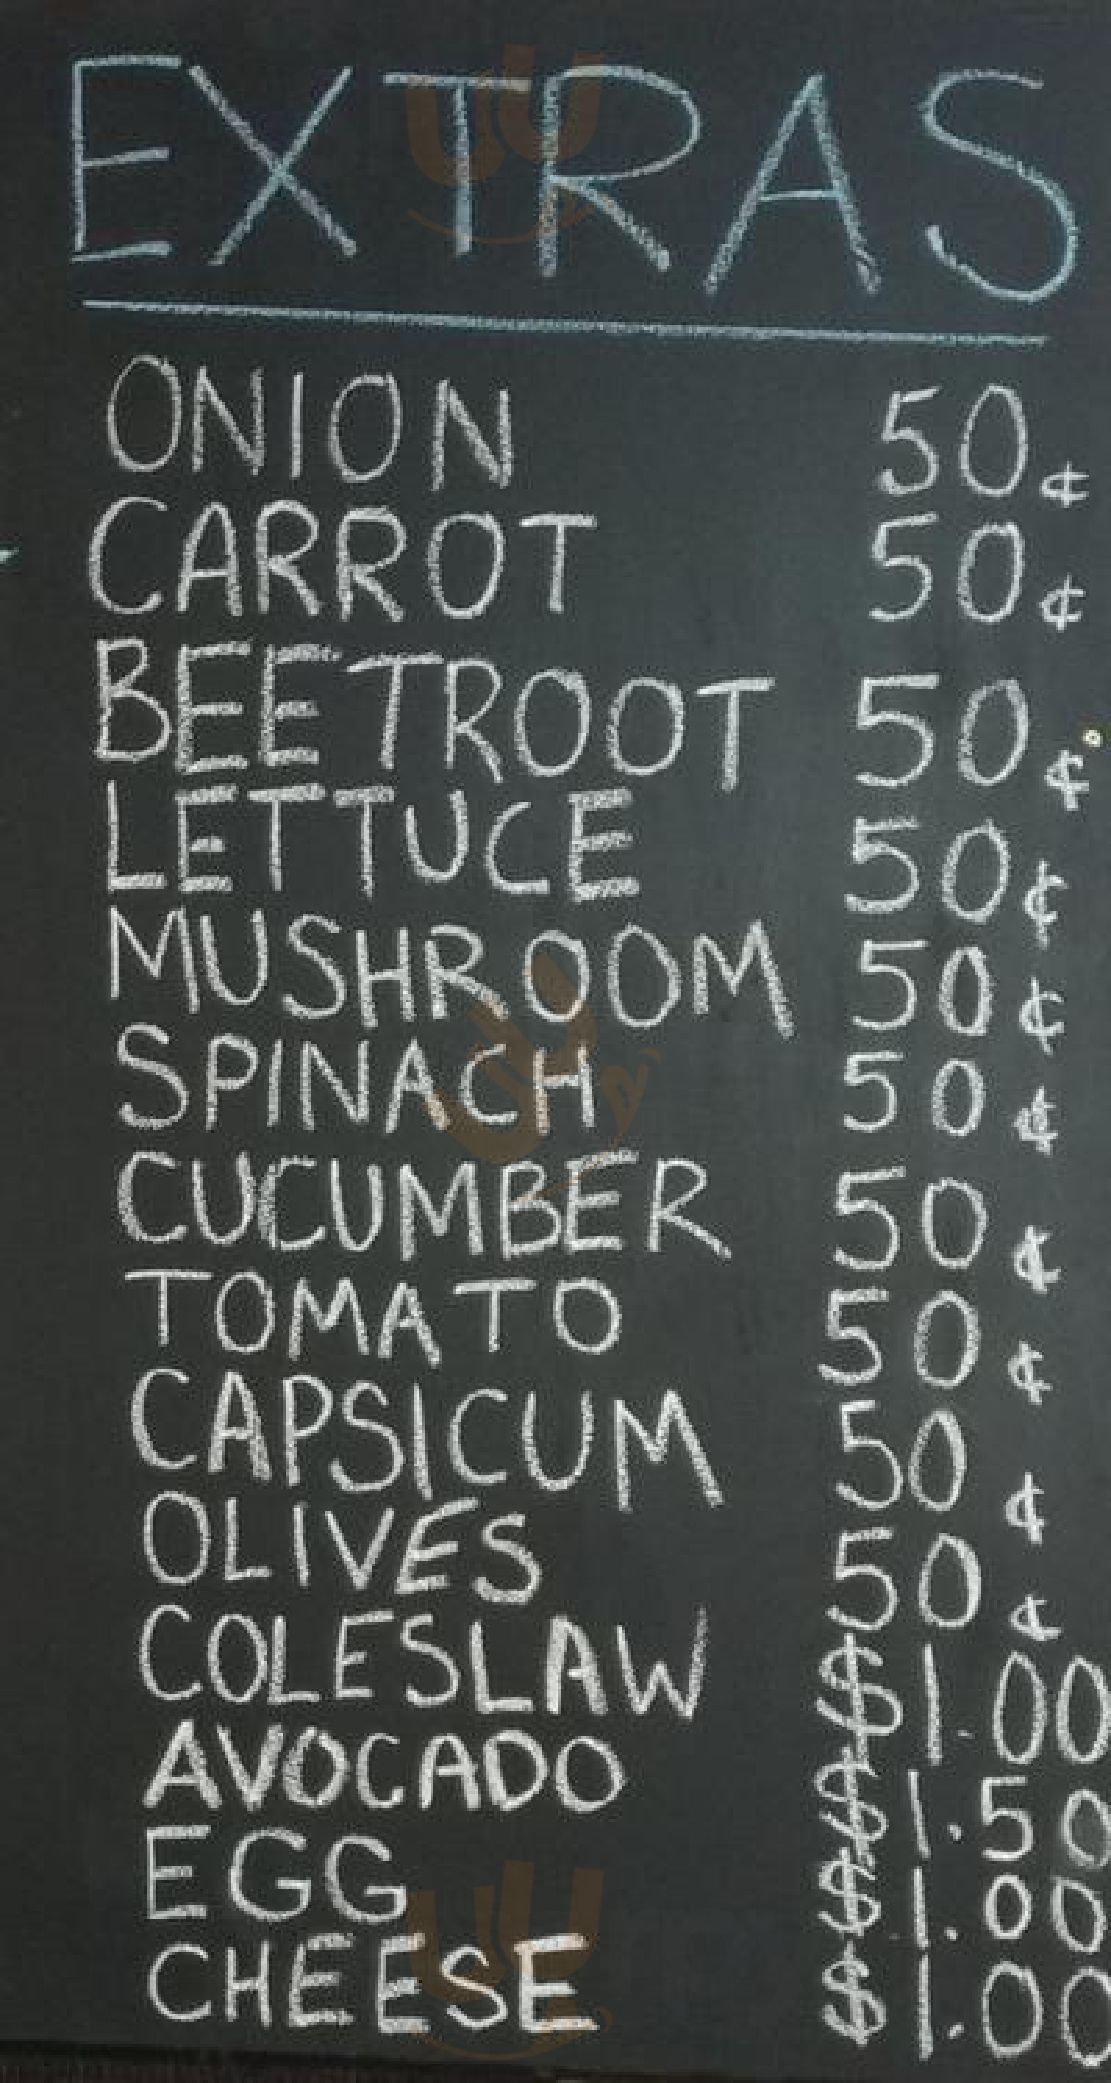 EXTRAS
ONION 50¢
CARROT 50¢
BEETROOT 50¢
LETTUCE 50¢
MUSHROOM 50¢
SPINACH 50¢
CUCUMBER 50¢
TOMATO 50¢
CAPSICUM 50¢
OLIVES 50¢
COLESLAW $1.00
AVOCADO $1.50
EGG $1.00
CHEESE $1.00